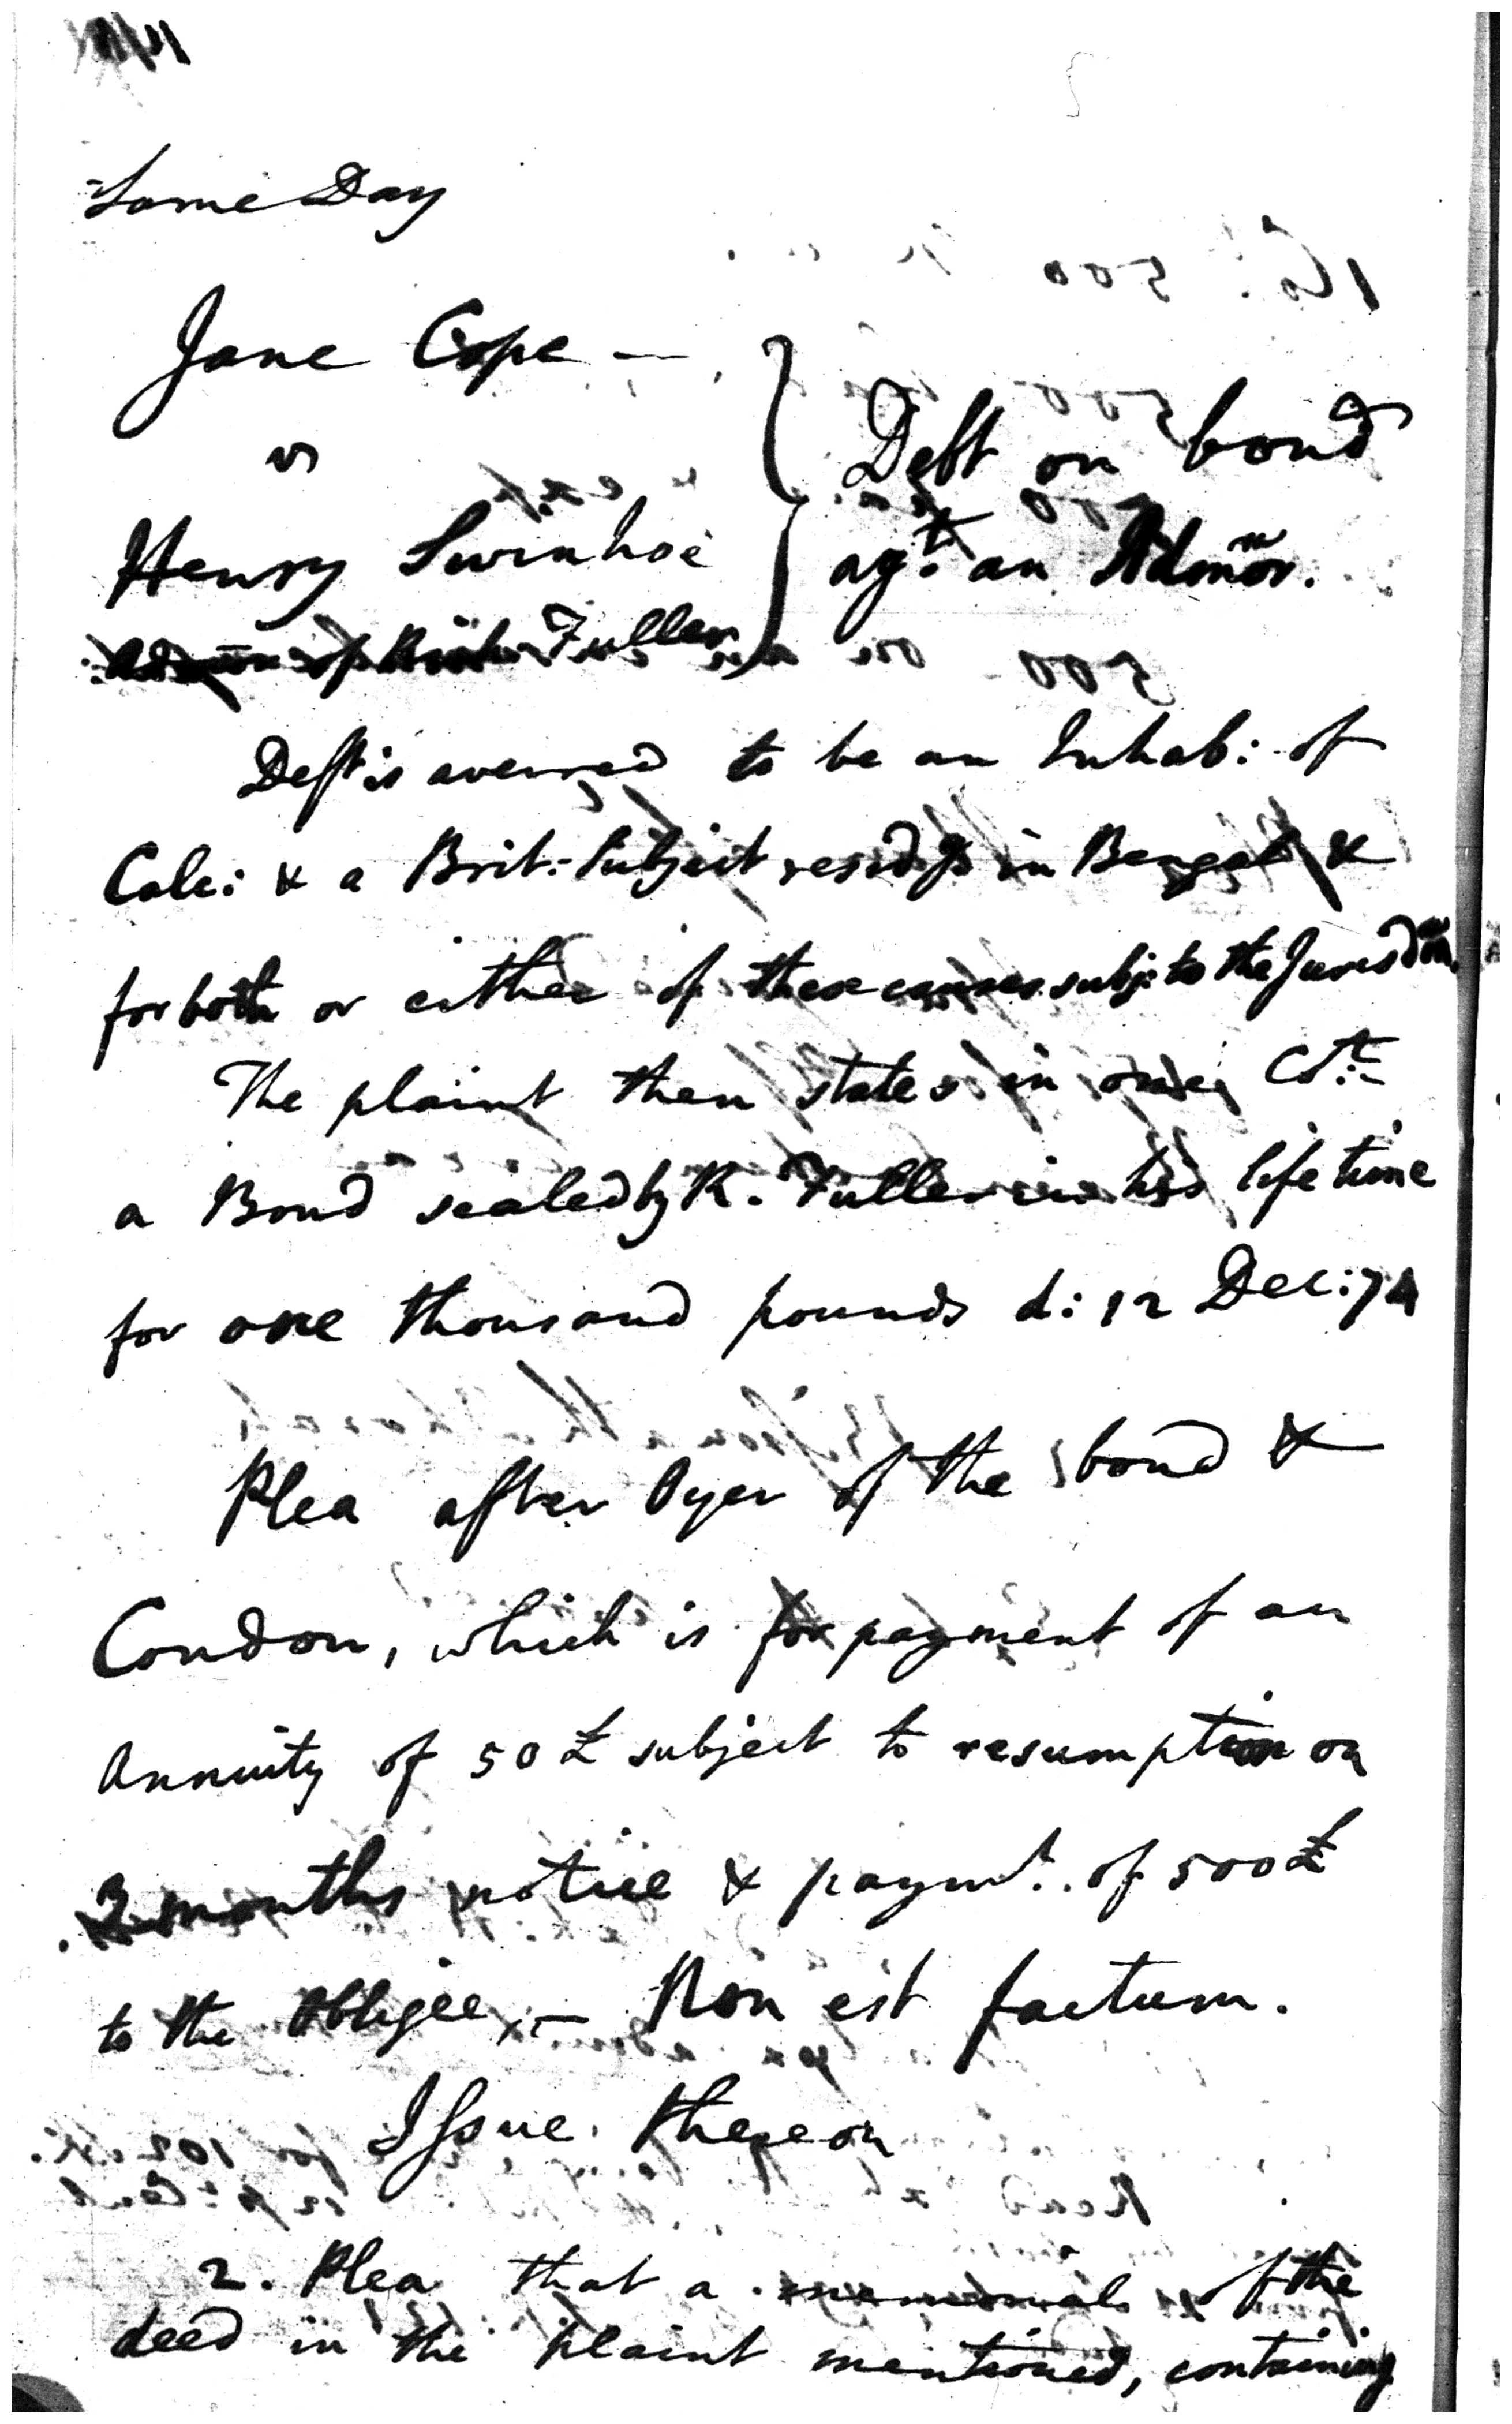 Same Day
Jane Cope —
vs
Henry Swinhoe
Admor of Rich Fuller
Debt on bond
agt. an Admor.
Deft is averred to be an Inhab: of
Calc: & a Brit: Subject residg in Bengal &
for both or either of these causes subj: to the Jurisdon.
The plaint then states in one Ct.
a Bond sealed by R. Fuller in his life time
for one thousand pounds d: 12 Dec: 74
Plea after Oyer of the bond &
Condon, which is for payment of an
Annuity of 50 £ subject to resumption on
3 months notice & paymt. of 500 £
to the Obligee, — Non est factum.
Issue thereon
2. Plea that a memorial of the
deed in the plaint mentioned, containing